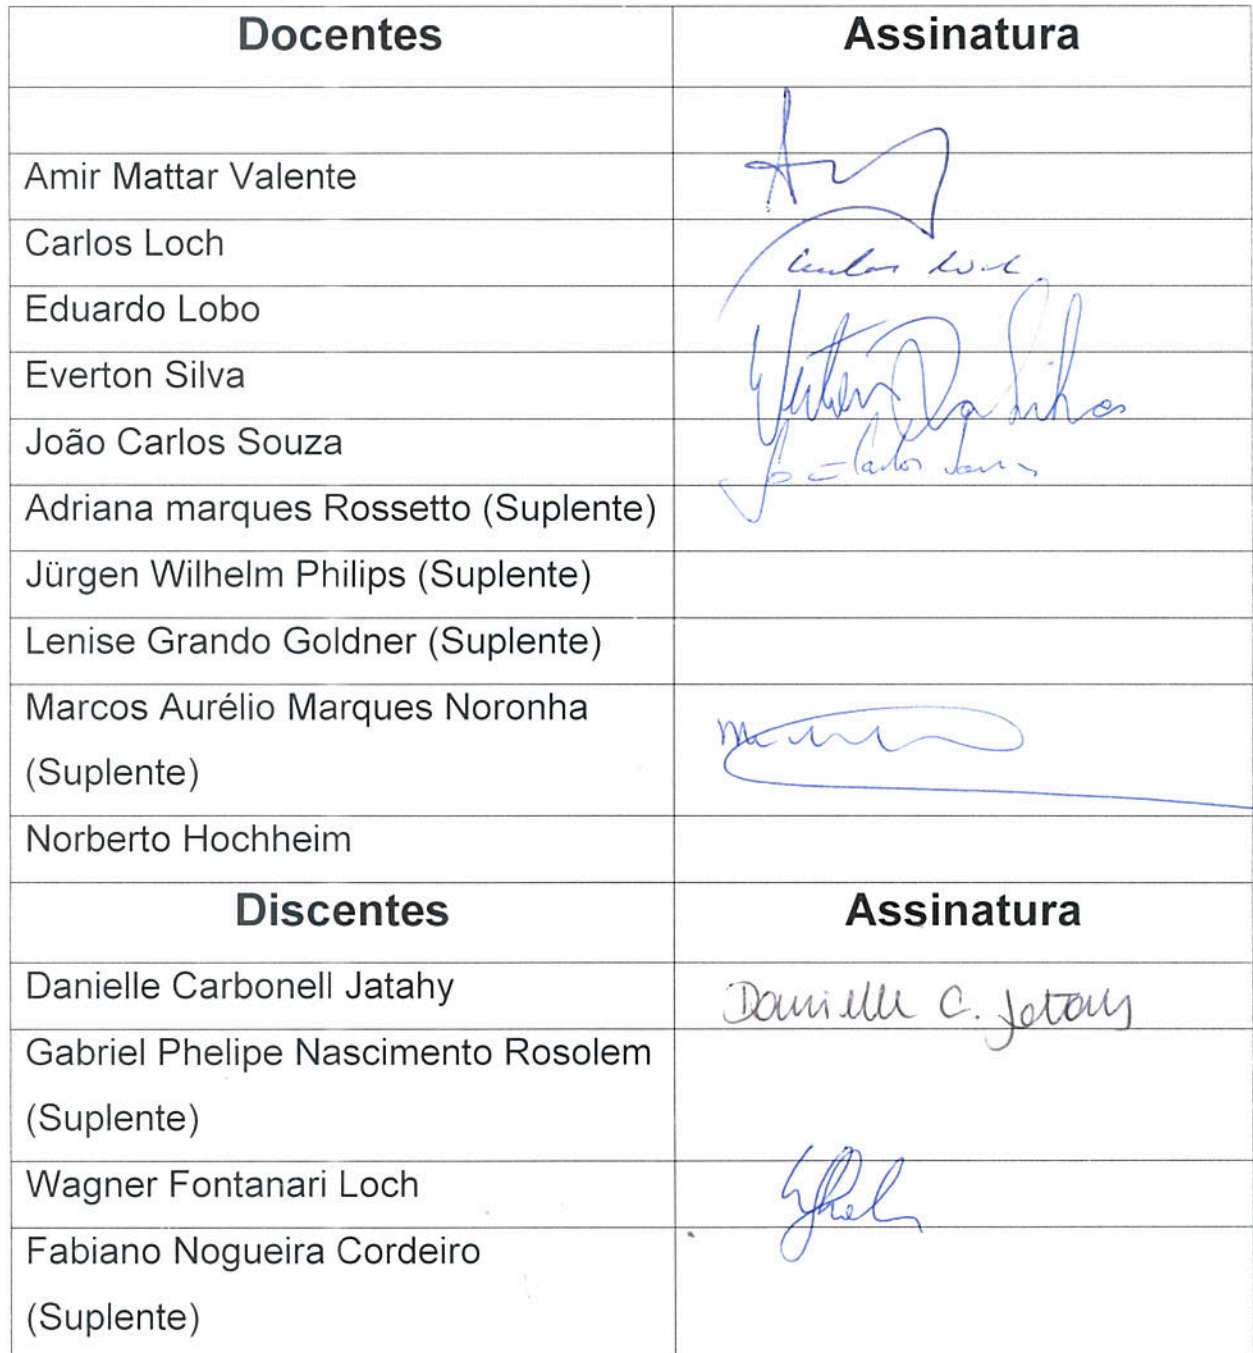 Docentes Assinatura
Amir Mattar Valente
Carlos Loch Carlos Loch
Eduardo Lobo
Everton Silva Everton Da Silva
João Carlos Souza João Carlos Souza
Adriana marques Rossetto (Suplente)
Jürgen Wilhelm Philips (Suplente)
Lenise Grando Goldner (Suplente)
Marcos Aurélio Marques Noronha
(Suplente)
Norberto Hochheim
Discentes Assinatura
Danielle Carbonell Jatahy Danielle C. Jatahy
Gabriel Phelipe Nascimento Rosolem
(Suplente)
Wagner Fontanari Loch
Fabiano Nogueira Cordeiro
(Suplente)